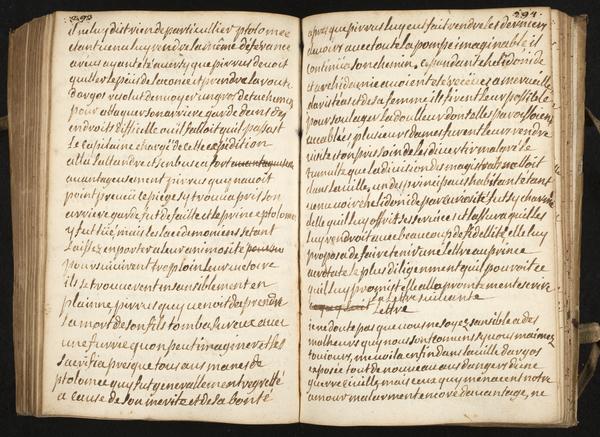 293
il ne luy dist rien de particullier ptolomee
estant venu luy rendre la même deferance
areus ayant eté averty que pirrus devoit
quitter le païs de laconie et prendre la route
dargos resolut denvoyer un gros detachemen
pour ataquer son arriere garde dans des
endroits difficille ou il falloit quil passast
le capitaine chargé de cette expedition
alla sallandre et senbusca
avantageusement pirrus quy navoit
point preveu le piege sy trouva apris son
arriere garde fut defaitte et le prince ptolomee
y fut tué, mais les lacedemoniens setant
laissez enporter a leur animosité
poursuivirent trop loin leur victoire
ils se trouverent insansiblement en
plainne, pirrus quy venoit daprendre
la mort de son fils tomba sur eux avec
une furrie quon peut imaginer et les
sacrifia presque tous aux manes de
ptolomee quy fut generallement regretté
a cause de son merite et de sa bonté
294
apres que pirrus luy eut fait rendre les derniers
devoirs avec toute la pompe imaginable il
continua son chemin. cependant chelidonide
et archidamie avoient eté recües a merveille
daristeas et de sa femme ils firent leur possible
pour soulager la doulleur dont elles paroissoient
acablées plusieurs dames furent leur rendre
visite et on pris soin de les divertir malgré le
tumulte que la division des magistrats
dans la ville, un des principaux habitans étant
venu voir chelidonide par curiosité fut sy charmé
delle quil luy offrit ses services et lassura quil les
luy rendroit avec beaucoup de fidellité, elle luy
proposa de faire tenir une lettre au prince
acrotate le plus diligenment quil pouroit ce
quil luy promit elle alla prontement ecrire
la lettre suivante
Lettre
je ne doute pas que vous ne soyez sansible a des
malheurs quy nous sont comuns sy vous maimez
toujours, me voila enfin dans la ville dargos
exposée tout de nouveau aux dangers dune
guerre civille, mais ceux quy menacent notre
amour malarment encore davantage, ne